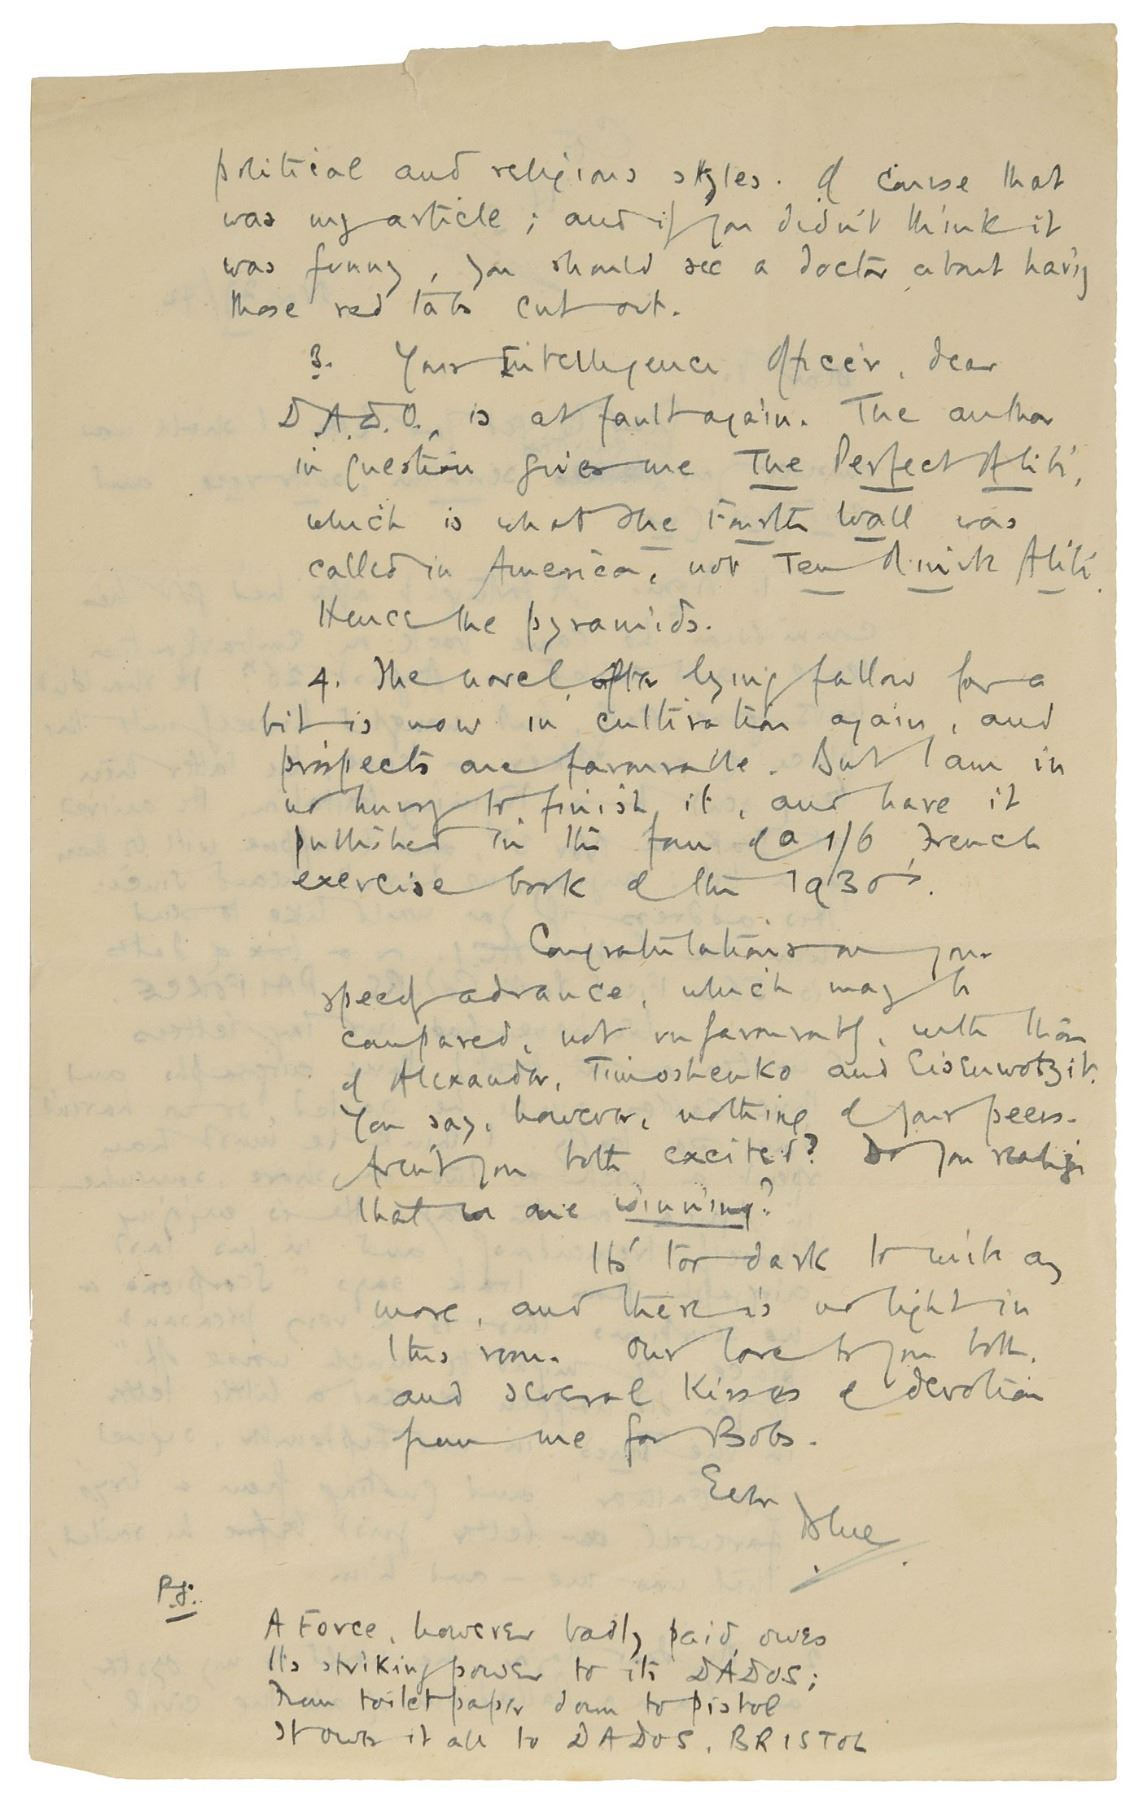 political and religious styles. Of course that
was my article; and if you didn't think it
was funny, you should see a doctor about havig
those red tabs cut out.
3. Your Intelligence Officer, dear
D.A.D.O., is at fault again. The author
in question gives me The Perfect Alibi,
which is what The Fourth Wall was
called in America, not Ten Minute Alibi.
Hence the pyramids.
4. The novel after lying fallow for a
bit is now in cultivation again, and
prospects are favourable. But I am in
no hurry to finish it, and have it
published in the form of a 1/6 French
exercise book of the 1930's.
Congratulations on your
speedy advance, which may be
compared, not unfavourably, with those
of Alexander, Timoshenko and Eisenwotzit.
You say, however, nothing of your peers.
Aren't you both excited? Do you realize
that we are winning?
It's too dark to write any
more, and there is no light in
this room. Our love to you both,
and several kisses of devotion
from me for Bobs.
Ever
Blue
P.S.
A Force, however badly paid, owes
Its striking power to its DADOS;
From toilet paper down to pistol
It owes it all to DADOS, BRISTOL